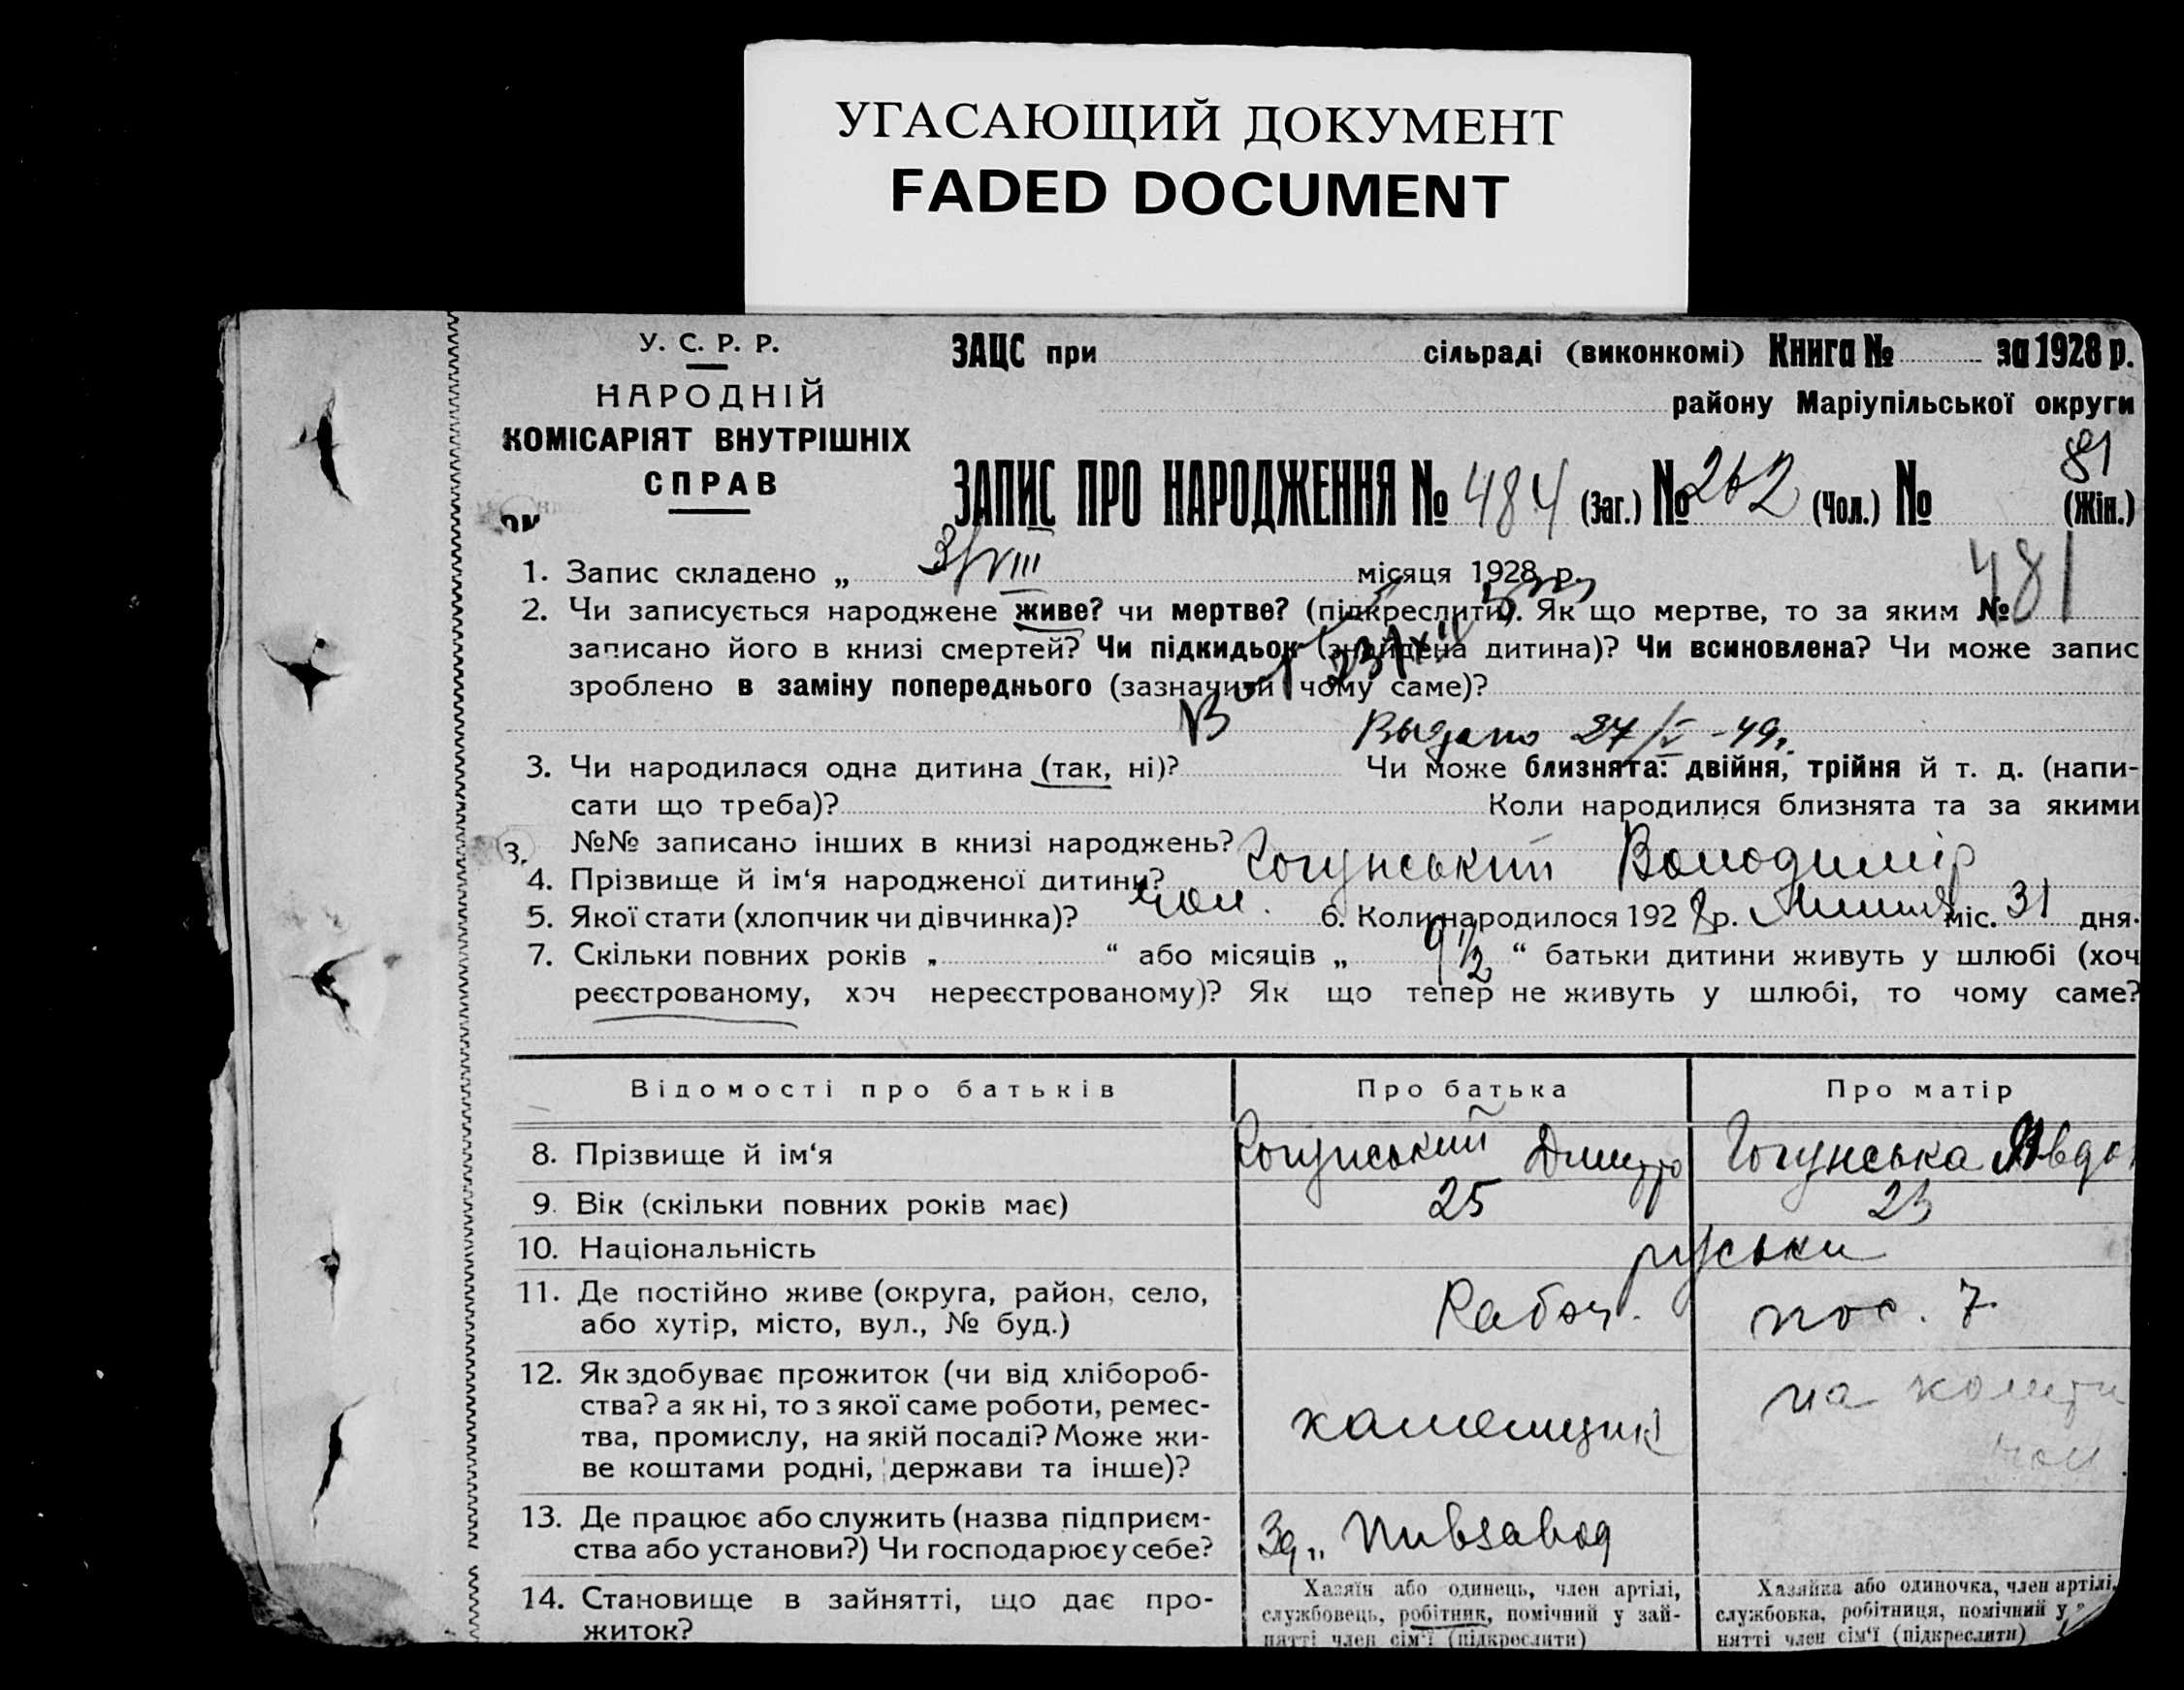 УГАСАЮЩИЙ ДОКУМЕНТ
FADED DOCUMENT
У. С. Р. Р.
НАРОДНІЙ
КОМІСАРІЯТ ВНУТРІШНІХ
СПРАВ
ЗАЦС при сільраді (виконкомі) Книга № за 1928 р.
району Маріупільської округи
81
ЗАПИС ПРО НАРОДЖЕННЯ № 484 (Заг.) № 262 (Чол.) № (Жін.)
1. Запис складено „ 3/VIII місяця 1928 р.
481
2. Чи записується народжене живе? чи мертве? (підкреслити). Як що мертве, то за яким №
записано його в книзі смертей? Чи підкидьок (знайдена дитина)? Чи всиновлена? Чи може запис
зроблено в заміну попереднього (зазначити чому саме)?
Выдано 27/V -49г.
3. Чи народилася одна дитина (так, ні)? Чи може близнята: двійня, трійня й т. д. (напи-
сати що треба)? Коли народилися близнята та за якими
№№ записано інших в книзі народжень?
3.
4. Прізвище й ім‘я народженої дитини? Гогунський Володимір
5. Якої стати (хлопчик чи дівчинка)? чол. 6. Коли народилося 1928 р. Липня міс. 31 дня.
7. Скільки повних років „ “ або місяців „ 9 1/2 “ батьки дитини живуть у шлюбі (хоч
реєстрованому, хоч нереєстрованому)? Як що тепер не живуть у шлюбі, то чому саме?
Відомості про батьків Про батька Про матір
8. Прізвище й ім‘я Гогунський Дмитро Гогунська Явдо
9. Вік (скільки повних років має) 25 23
10. Національність руськи
11. Де постійно живе (округа, район, село, Рабоч. пос. 7
або хутір, місто, вул., № буд.)
12. Як здобуває прожиток (чи від хлібороб-
ства? а як ні, то з якої саме роботи, ремес- на
тва, промислу, на якій посаді? Може жи- каменщик
ве коштами родні, держави та інше)? чол
13. Де працює або служить (назва підприєм-
ства або установи?) Чи господарює у себе?
14. Становище в зайнятті, що дає про-
житок?
Хазяїн або одинець, член артілі,
службовець, робітник, помічний у зай-
нятті член сім‘ї (підкреслити)
Хазяйка або одиночка, член артілі,
службовка, робітниця, помічний у
нятті член сім‘ї (підкреслити)